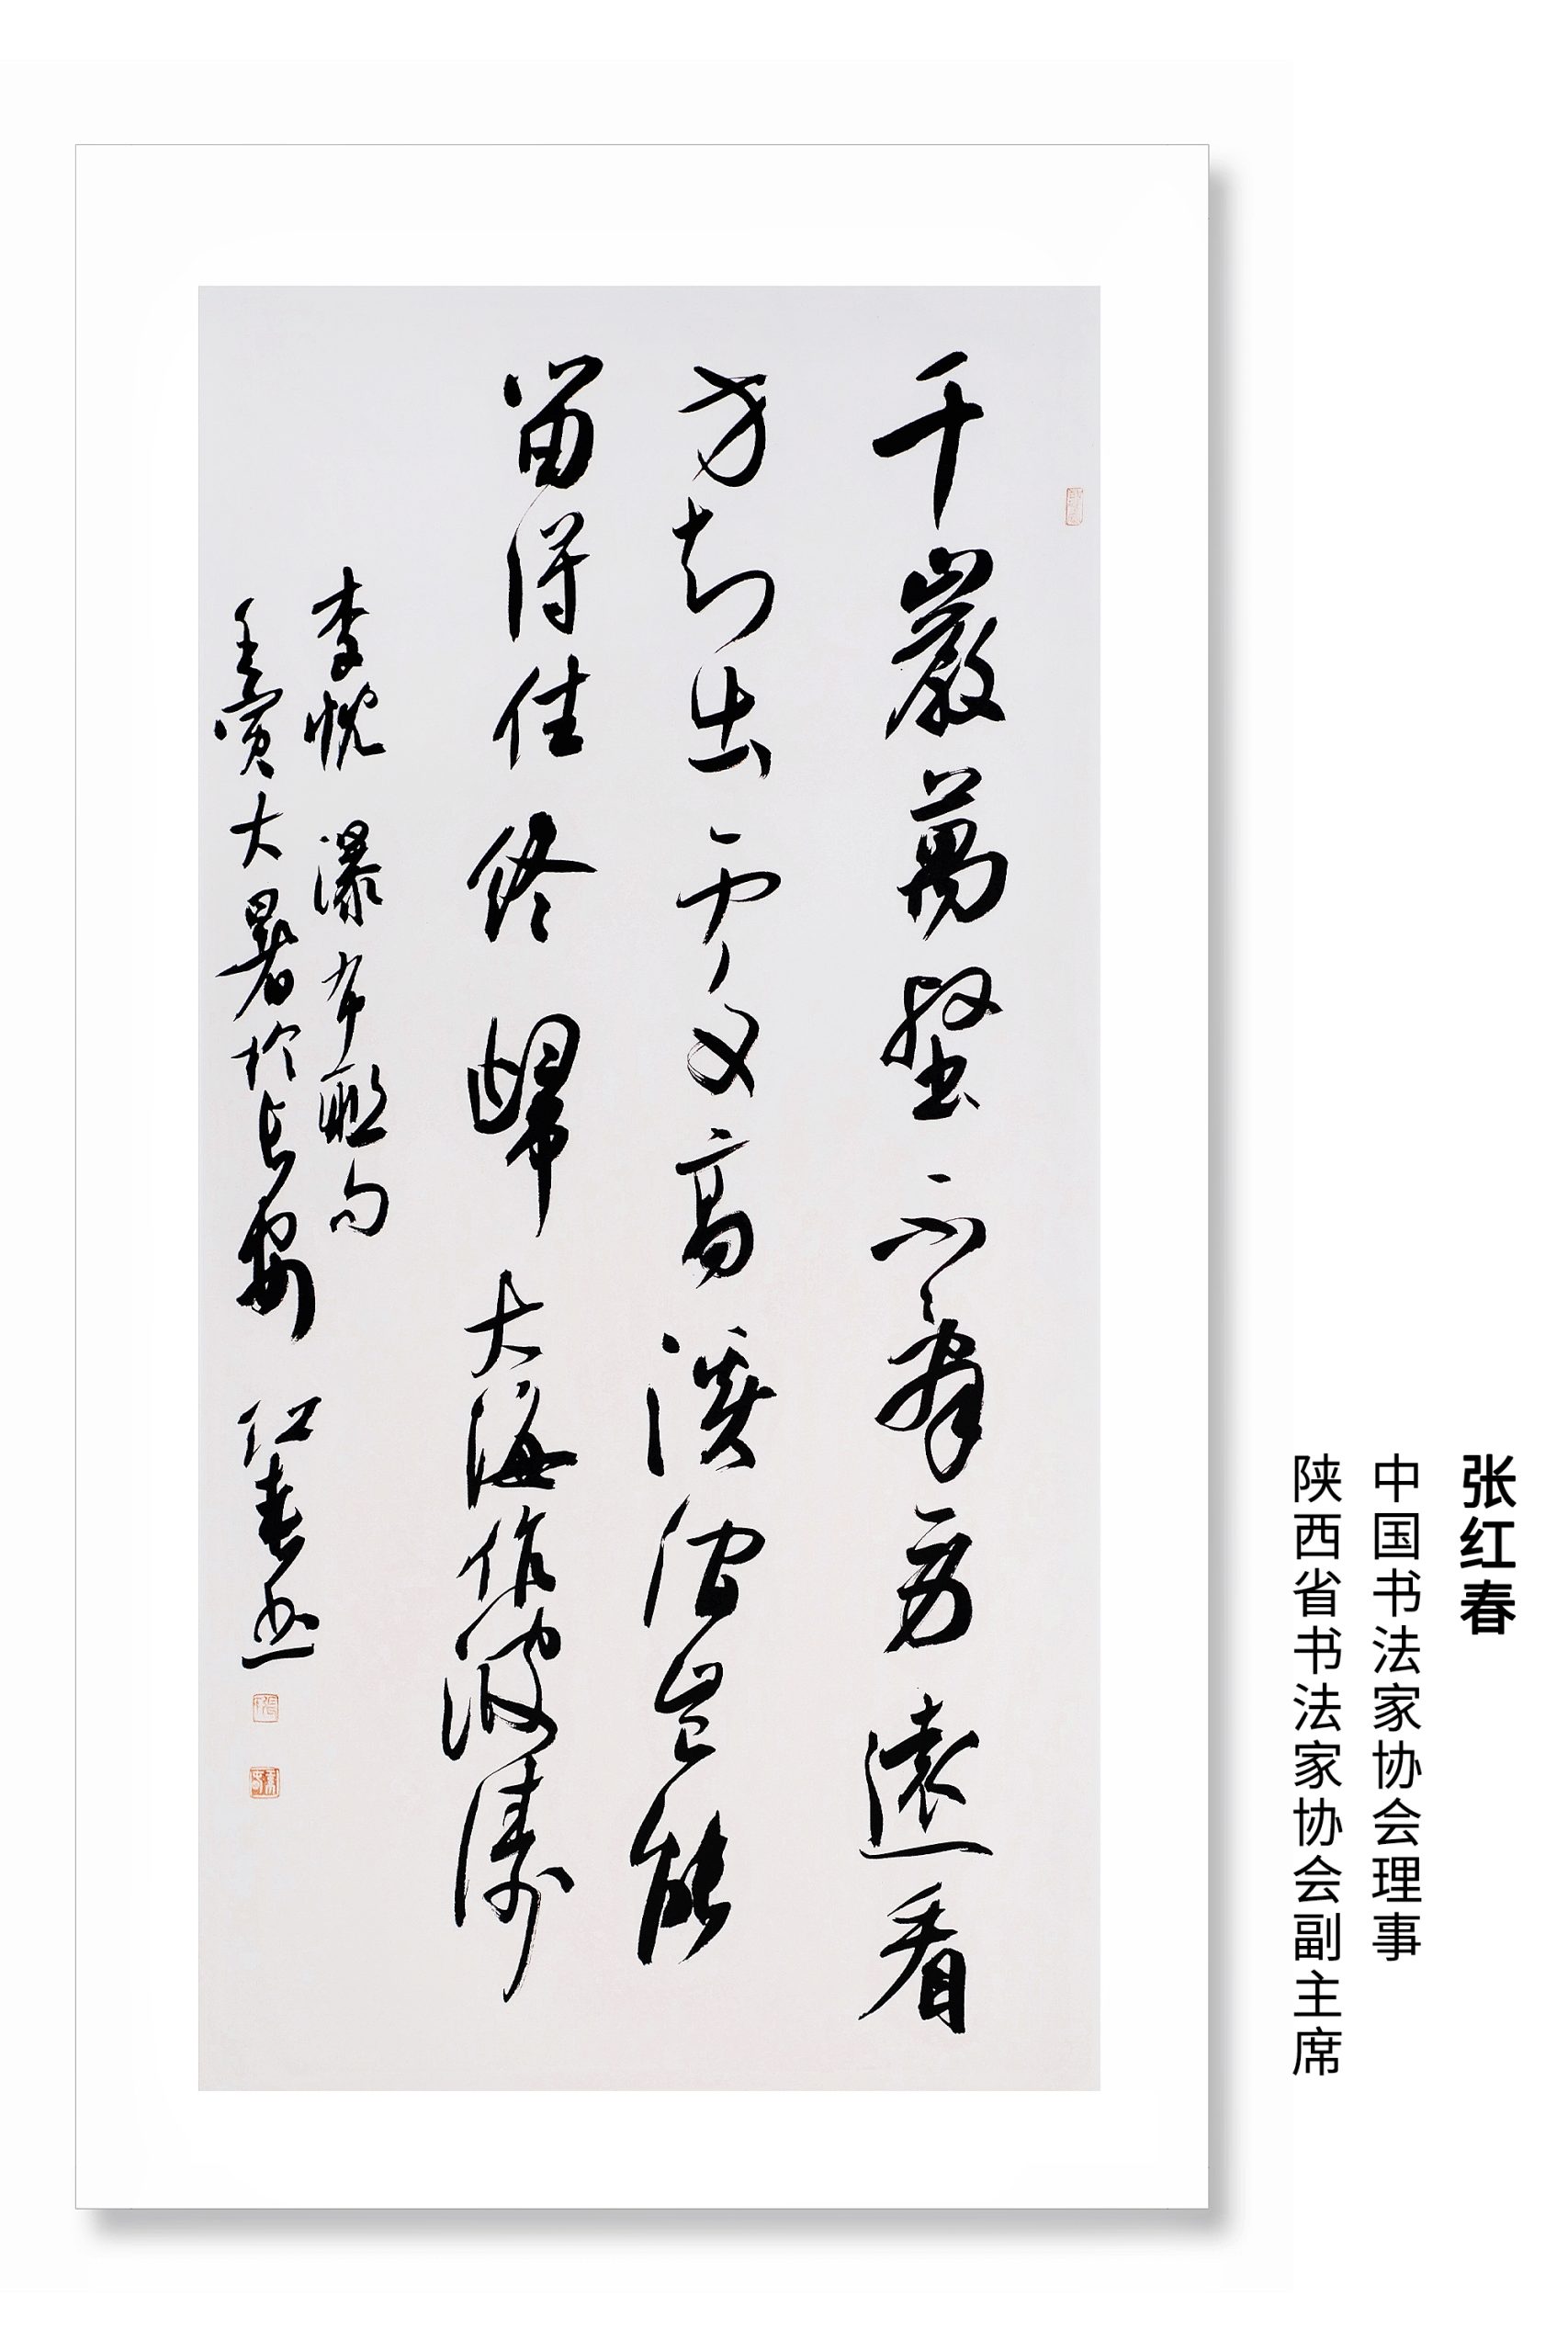 张红春
中国书法家协会理事
陕西省书法家协会副主席
千巖萬壑不辭勞遠看
方知出處高溪澗豈能
留得住終歸大海作波濤
李忱 瀑布聯句
壬寅大暑於長安 紅春書